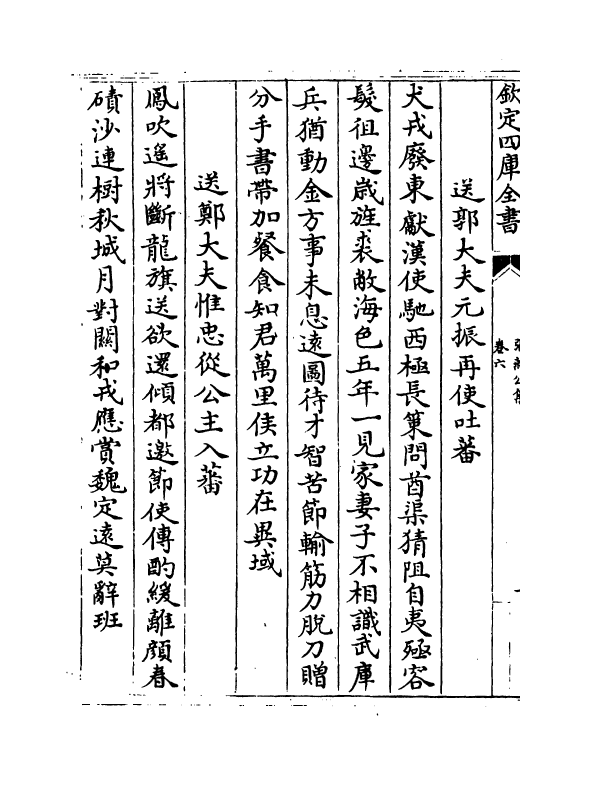 欽定四庫全書
卷六
送郭大夫元振再使吐蕃
犬戎廢東獻漢使馳西極長䇿問酋渠猜阻自夷殛容
髮徂邊歲旌裘敝海色五年一見家妻子不相識武庫
兵猶動金方事未息遠圖待才智苦節輸筋力脫刀贈
分手書帶加餐食知君萬里侯立功在異域
送鄭大夫惟忠從公主入蕃
鳳吹遙將斷龍旗送欲還傾都邀節使傳酌緩離顔春
磧沙連樹秋城月對關和戎應賞魏定遠莫辭班